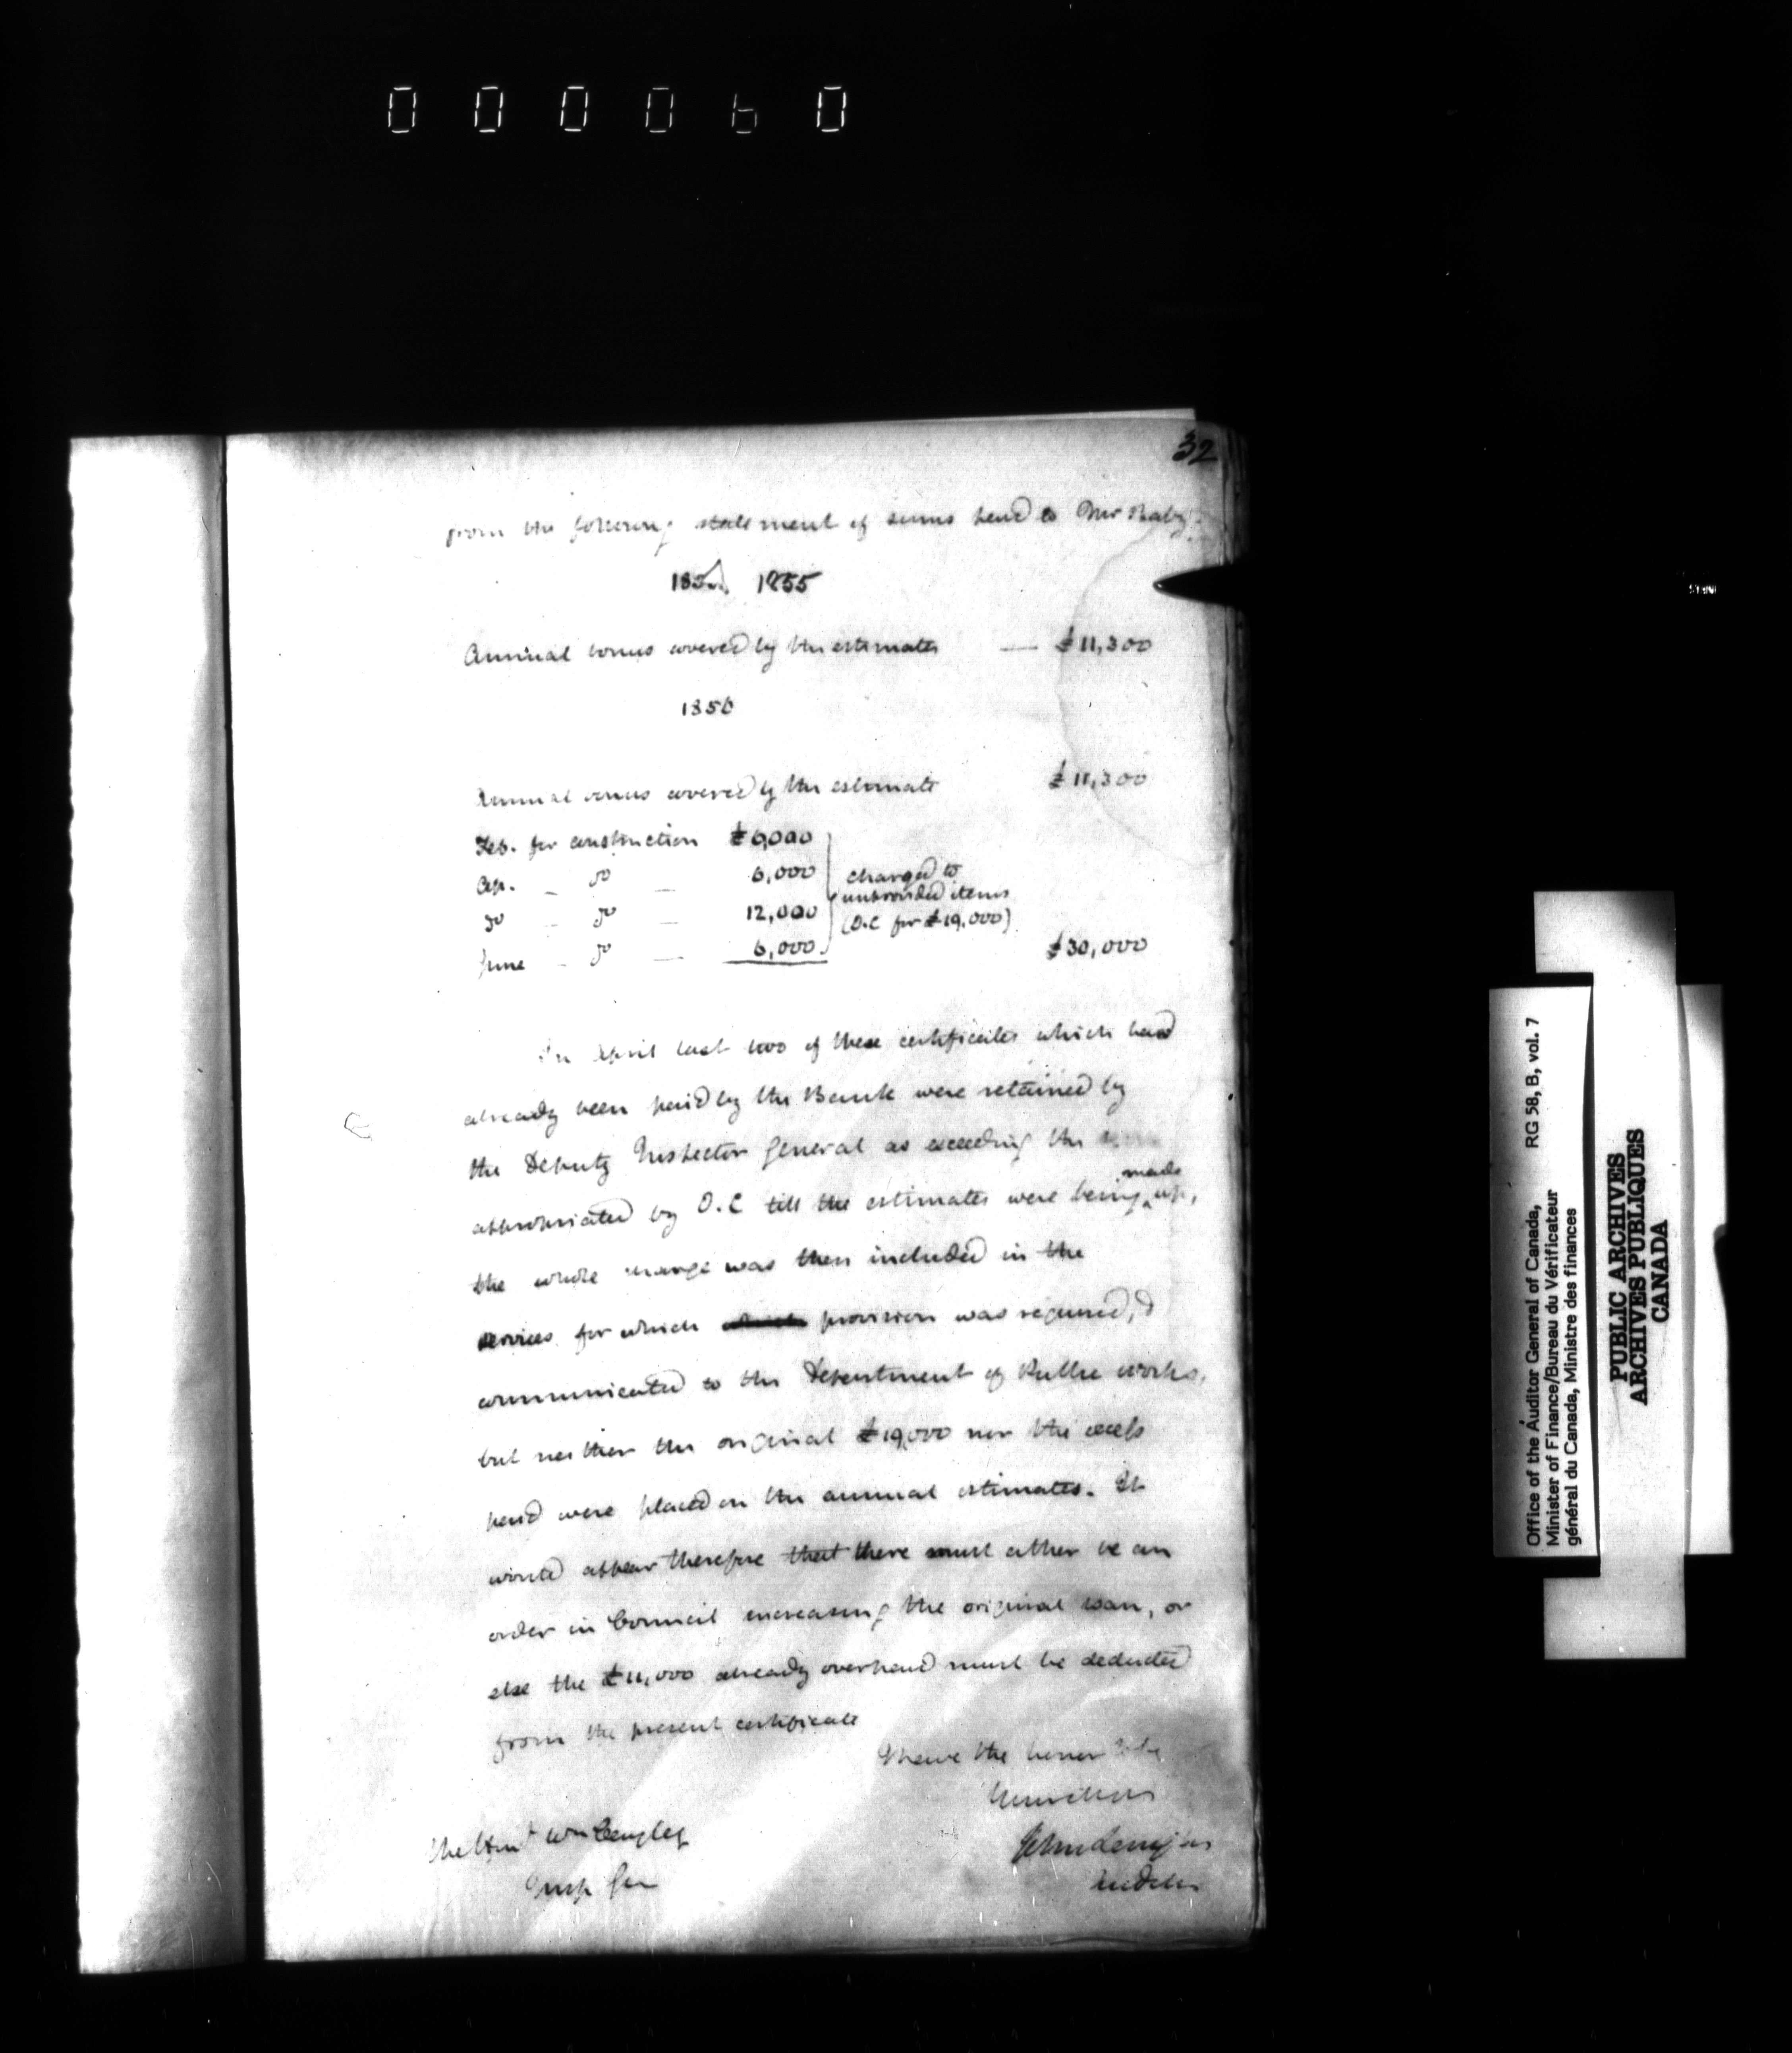 000060
32
from the following statement of sums paid to Mr Baby.
1855
Annual bonus covered by the estimates — £11,300
1856
Annual bonus covered by the estimate £11,300
Feb. for construction £6,000
Ap. – do – 6,000 charged to
unprovided items
do – do – 12,000 (O.C for £19,000)
June – do – 6,000 £30,000
In April last two of these certificates which had
already been paid by the Bank were retained by
the Deputy Inspector General as exceeding the
appropriated by O.C till the estimates were being made up,
the whole charge was then included in the
services for which provision was required, &
communicated to the Department of Public works,
but neither the original £19,000 nor the excess
paid were placed on the annual estimates. It
would appear therefore that there must either be an
order in Council increasing the original loan, or
else the £11,000 already overpaid must be deducted
from the present certificate
I have the honor to be
John Langton
Auditor
The Honl Wm Cayley
Insp Gen
Office of the Auditor General of Canada, RG 58, B, vol. 7
Minister of Finance/Bureau du Vérificateur
général du Canada, Ministre des finances
PUBLIC ARCHIVES
ARCHIVES PUBLIQUES
CANADA